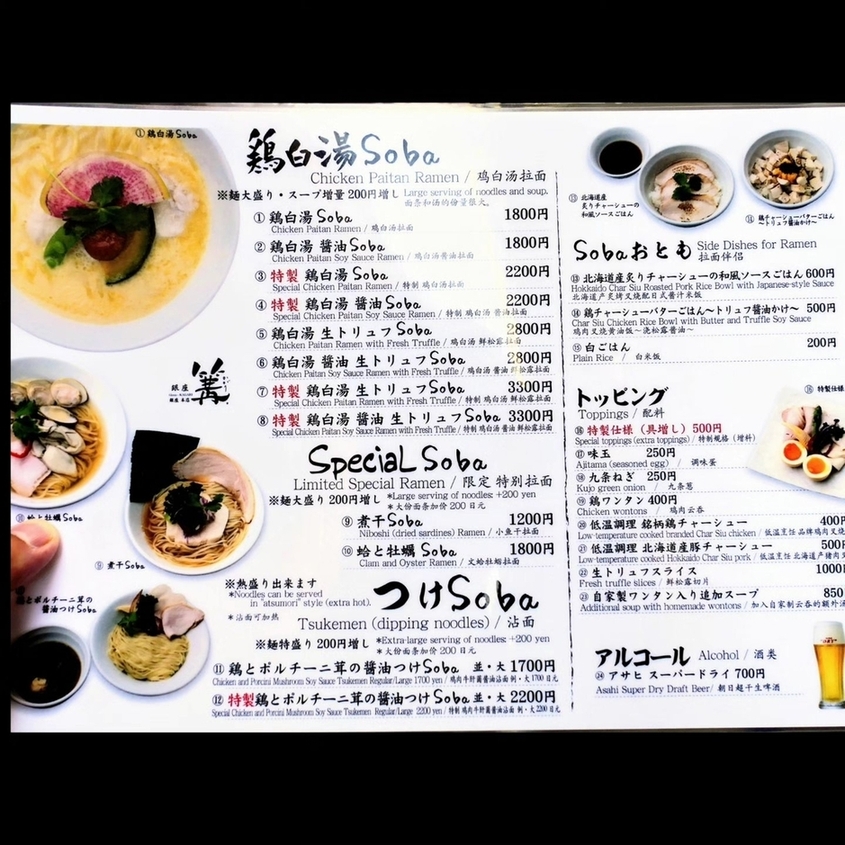 ① 鶏白湯Soba
鶏白湯Soba
Chicken Paitan Ramen / 鸡白汤拉面
※麵大盛り・スープ増量 200円増し Large serving of noodles and soup.
面条和汤的份量很大。
① 鶏白湯 Soba 1800円
Chicken Paitan Ramen / 鸡白汤拉面
② 鶏白湯 醤油 Soba 1800円
Chicken Paitan Soy Sauce Ramen / 鸡白汤酱油拉面
③ 特製 鶏白湯 Soba 2200円
Special Chicken Paitan Ramen / 特制 鸡白汤拉面
④ 特製 鶏白湯 醤油 Soba 2200円
Special Chicken Paitan Soy Sauce Ramen / 特制 鸡白汤 酱油拉面
⑤ 鶏白湯 生トリュフ Soba 2800円
Chicken Paitan Ramen with Fresh Truffle / 鸡白汤 鲜松露拉面
⑥ 鶏白湯 醤油 生トリュフ Soba 2800円
Chicken Paitan Soy Sauce Ramen with Fresh Truffle / 鸡白汤 酱油 鲜松露拉面
⑦ 特製 鶏白湯 生トリュフ Soba 3300円
Special Chicken Paitan Ramen with Fresh Truffle / 特制 鸡白汤 鲜松露拉面
⑧ 特製 鶏白湯 醤油 生トリュフ Soba 3300円
Special Chicken Paitan Soy Sauce Ramen with Fresh Truffle / 特制 鸡白汤 酱油 鲜松露拉面
銀座
篝
銀座本店
Special Soba
Limited Special Ramen / 限定 特别拉面
※麵大盛り 200円増し *Large serving of noodles: +200 yen
*大份面条加价 200 日元
⑨ 煮干 Soba 1200円
Niboshi (dried sardines) Ramen / 小鱼干拉面
⑩ 蛤と牡蠣 Soba 1800円
Clam and Oyster Ramen / 文蛤牡蛎拉面
⑩ 蛤と牡蠣 Soba
⑨ 煮干 Soba
鶏とポルチーニ茸の
醤油つけSoba
※熱盛り出来ます
*Noodles can be served
in "atsumori" style (extra hot).
*沾面可加热
つけSoba
Tsukemen (dipping noodles) / 沾面
※麵特盛り 200円増し *Extra-large serving of noodles: +200 yen
*大份面条加价 200 日元
⑪ 鶏とポルチーニ茸の醤油つけSoba 並・大 1700円
Chicken and Porcini Mushroom Soy Sauce Tsukemen Regular/Large 1700 yen / 鸡肉牛肝菌酱油沾面 例・大 1700 日元
⑫ 特製鶏とポルチーニ茸の醤油つけSoba 並・大 2200円
Special Chicken and Porcini Mushroom Soy Sauce Tsukemen Regular/Large 2200 yen / 特制 鸡肉牛肝菌酱油沾面 例・大 2200 日元
⑬ 北海道産
炙りチャーシューの
和風ソースごはん
⑭ 鶏チャーシューバターごはん
〜トリュフ醤油かけ〜
Sobaおとも Side Dishes for Ramen
拉面伴侣
⑬ 北海道産炙りチャーシューの和風ソースごはん 600円
Hokkaido Char Siu Roasted Pork Rice Bowl with Japanese-style Sauce
北海道产炙烤叉烧配日式酱汁米饭
⑭ 鶏チャーシューバターごはん〜トリュフ醤油かけ〜 500円
Char Siu Chicken Rice Bowl with Butter and Truffle Soy Sauce
鸡肉叉烧黄油饭〜浇松露酱油〜
⑮ 白ごはん 200円
Plain Rice / 白米饭
トッピング
Toppings / 配料
⑯ 特製仕様
⑯ 特製仕様（具増し）500円
Special toppings (extra toppings) / 特制规格（增料）
⑰ 味玉 250円
Ajitama (seasoned egg) / 调味蛋
⑱ 九条ねぎ 250円
Kujo green onion / 九条葱
⑲ 鶏ワンタン 400円
Chicken wontons / 鸡肉云吞
⑳ 低温調理 銘柄鶏チャーシュー 400円
Low-temperature cooked branded Char Siu chicken / 低温烹饪 品牌鸡肉叉烧
㉑ 低温調理 北海道産豚チャーシュー 500円
Low-temperature cooked Hokkaido Char Siu pork / 低温烹饪 北海道产猪肉
㉒ 生トリュフスライス 1000円
Fresh truffle slices / 鲜松露切片
㉓ 自家製ワンタン入り追加スープ 850
Additional soup with homemade wontons / 加入自家制云吞的额外汤
アルコール Alcohol / 酒类
㉔ アサヒ スーパードライ 700円
Asahi Super Dry Draft Beer / 朝日超干生啤酒